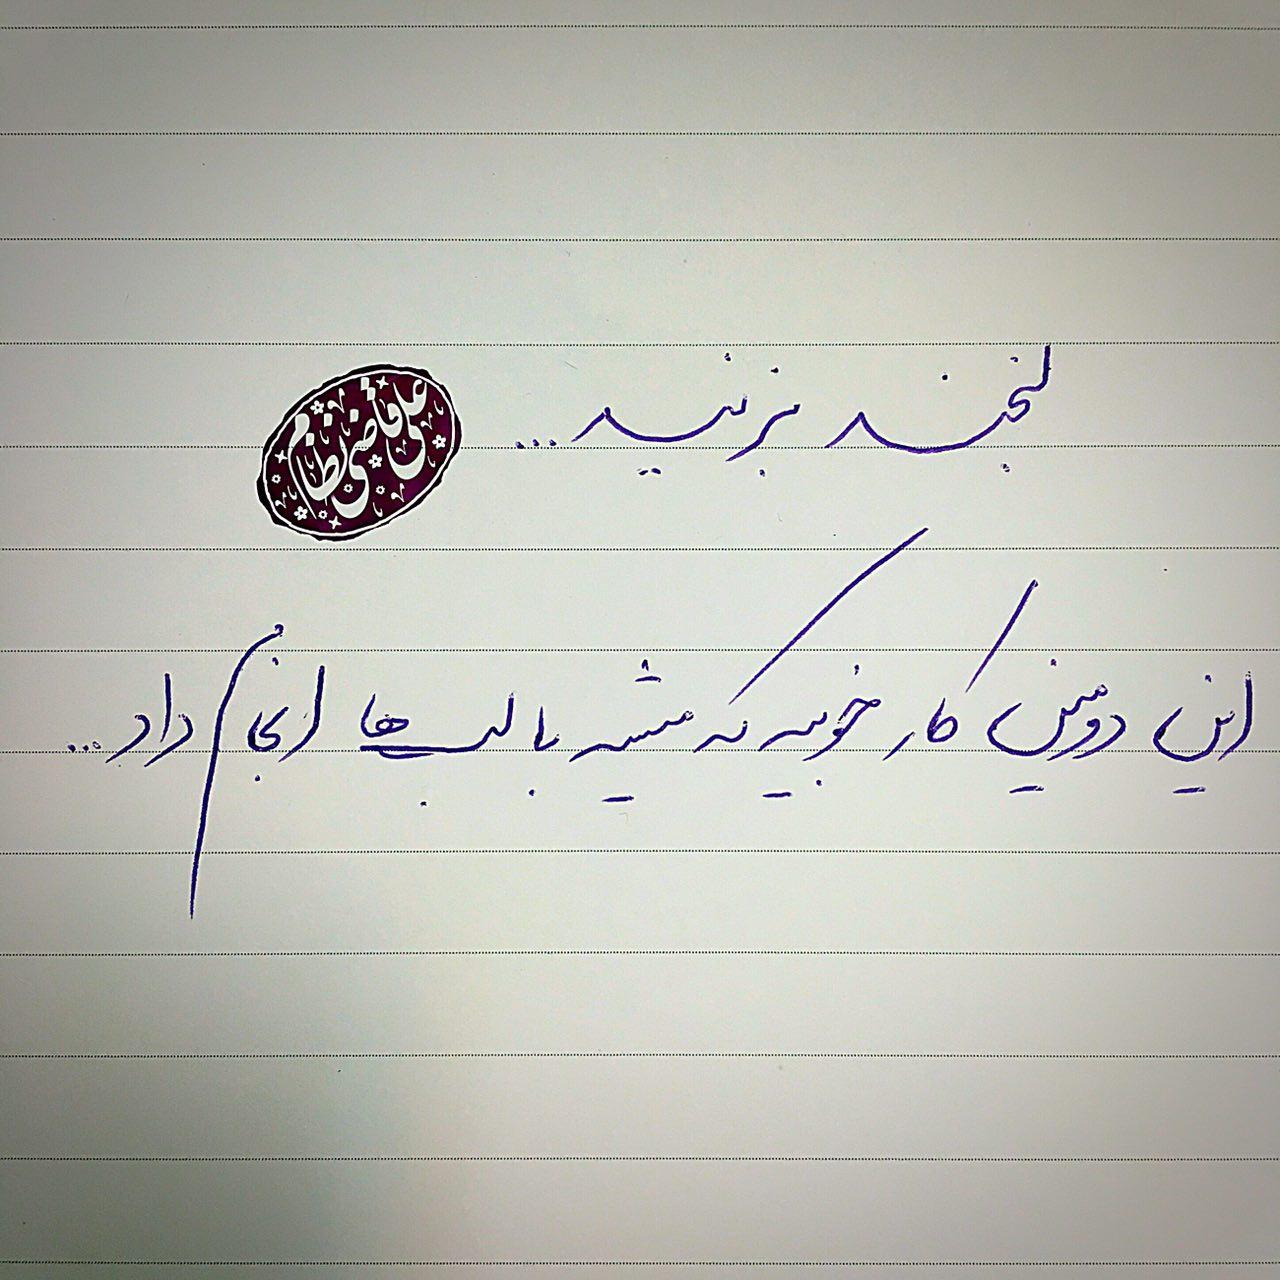 لبخند بزنید...
علی قاضی نظام
این دومین کار خوبیه که میشه با لب‌ها انجام داد...